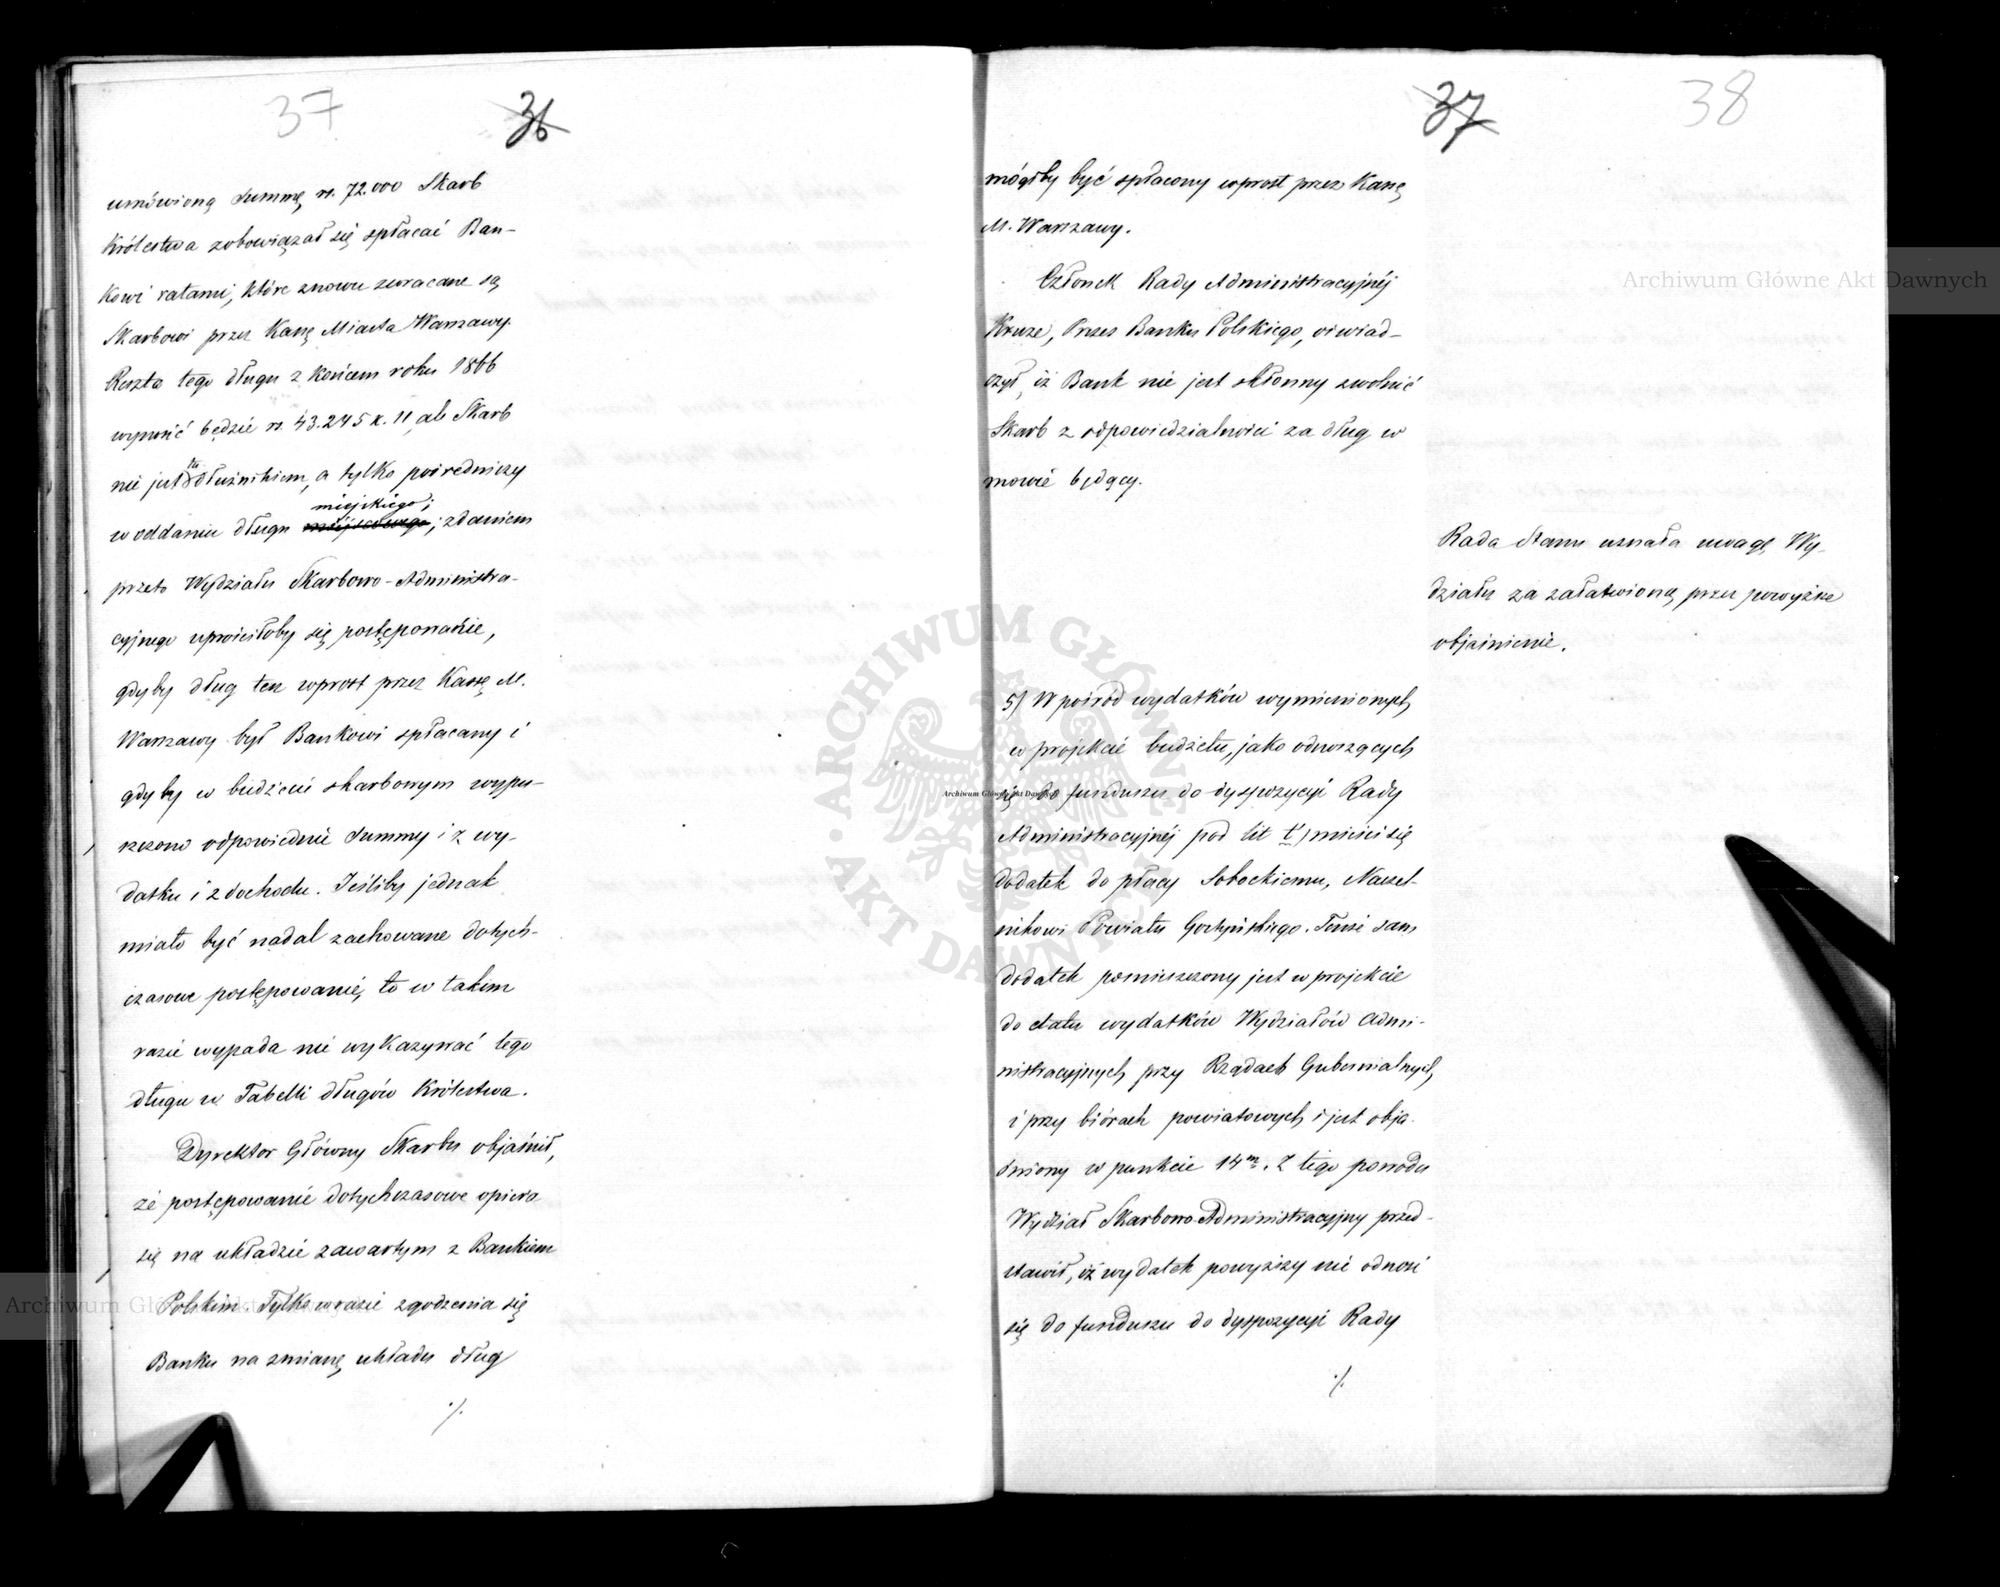 37 36
umówioną summę rs. 72.000 Skarb
Królestwa zobowiązał się spłacać Ban-
kowi ratami, które znowu zwracane są
Skarbowi przez Kassę Miasta Warszawy.
Reszta tego długu z końcem roku 1866
wynosić będzie rs. 43.245 k. 11, ale Skarb
nie jest tu dłużnikiem, a tylko pośredniczy
miejskiego;
w oddaniu długu miejscowego; zdaniem
przeto Wydziału Skarbowo-Administra-
cyjnego uprościłoby się postępowanie,
gdyby dług ten wprost przez Kassę M.
Warszawy był Bankowi spłacany i
gdyby w budżecie skarbowym wypu-
szczono odpowiednie summy i z wy-
datku i z dochodu. Jeśliby jednak
miało być nadal zachowane dotych-
czasowe postępowanie, to w takim
razie wypada nie wykazywać tego
długu w Tabelli długów Królestwa.
Dyrektor Główny Skarbu objaśnił,
że postępowanie dotychczasowe opiera
się na układzie zawartym z Bankiem
Polskim. Tylko w razie zgodzenia się
Banku na zmianę układu dług
./.
37 38
mógłby być spłacony wprost przez Kassę
M. Warszawy.
Członek Rady Administracyjnéj
Kruze, Prezes Banku Polskiego, oświad-
czył, iż Bank nie jest skłonny zwolnić
Skarb z odpowiedzialności za dług w
mowie będący.
Rada Stanu uznała uwagę Wy-
działu za załatwioną przez powyższe
objaśnienie.
5) Wpośród wydatków wymienionych
w projekcie budżetu, jako odnoszących
się do funduszu do dyspozycyi Rady
Administracyjnéj pod lit t) mieści się
dodatek do płacy Sobockiemu, Naczel-
nikowi Powiatu Gostyńskiego. Tenże sam
dodatek pomieszczony jest w projekcie
do etatu wydatków Wydziałów admi-
nistracyjnych przy Rządach Gubernialnych
i przy biórach powiatowych i jest obja-
śniony w punkcie 14m. Z tego powodu
Wydział Skarbowo-Administracyjny przed-
stawił, iż wydatek powyższy nie odnosi
się do funduszu do dyspozycyi Rady
./.
Archiwum Główne Akt Dawnych
Archiwum Główne Akt Dawnych
ARCHIWUM GŁÓWNE AKT DAWNYCH